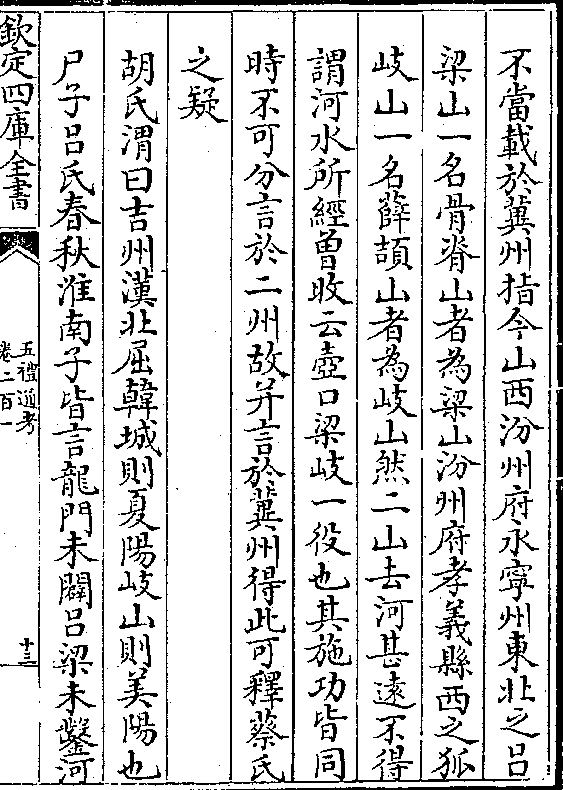 不當載於冀州指今山西汾州府永寧州東北之呂
梁山一名骨脊山者為梁山汾州府孝義縣西之狐
岐山一名薛頡山者為岐山然二山去河甚逺不得
謂河水所經曽旼云壺口梁岐一役也其施功皆同
時不可分言於二州故并言於冀州得此可釋蔡氏
之疑
胡氏渭曰吉州漢北屈韓城則夏陽岐山則美陽也
尸子呂氏春秋淮南子皆言龍門未闢呂梁未鑿河
欽定四庫全書
五禮通考
卷二百一
十三